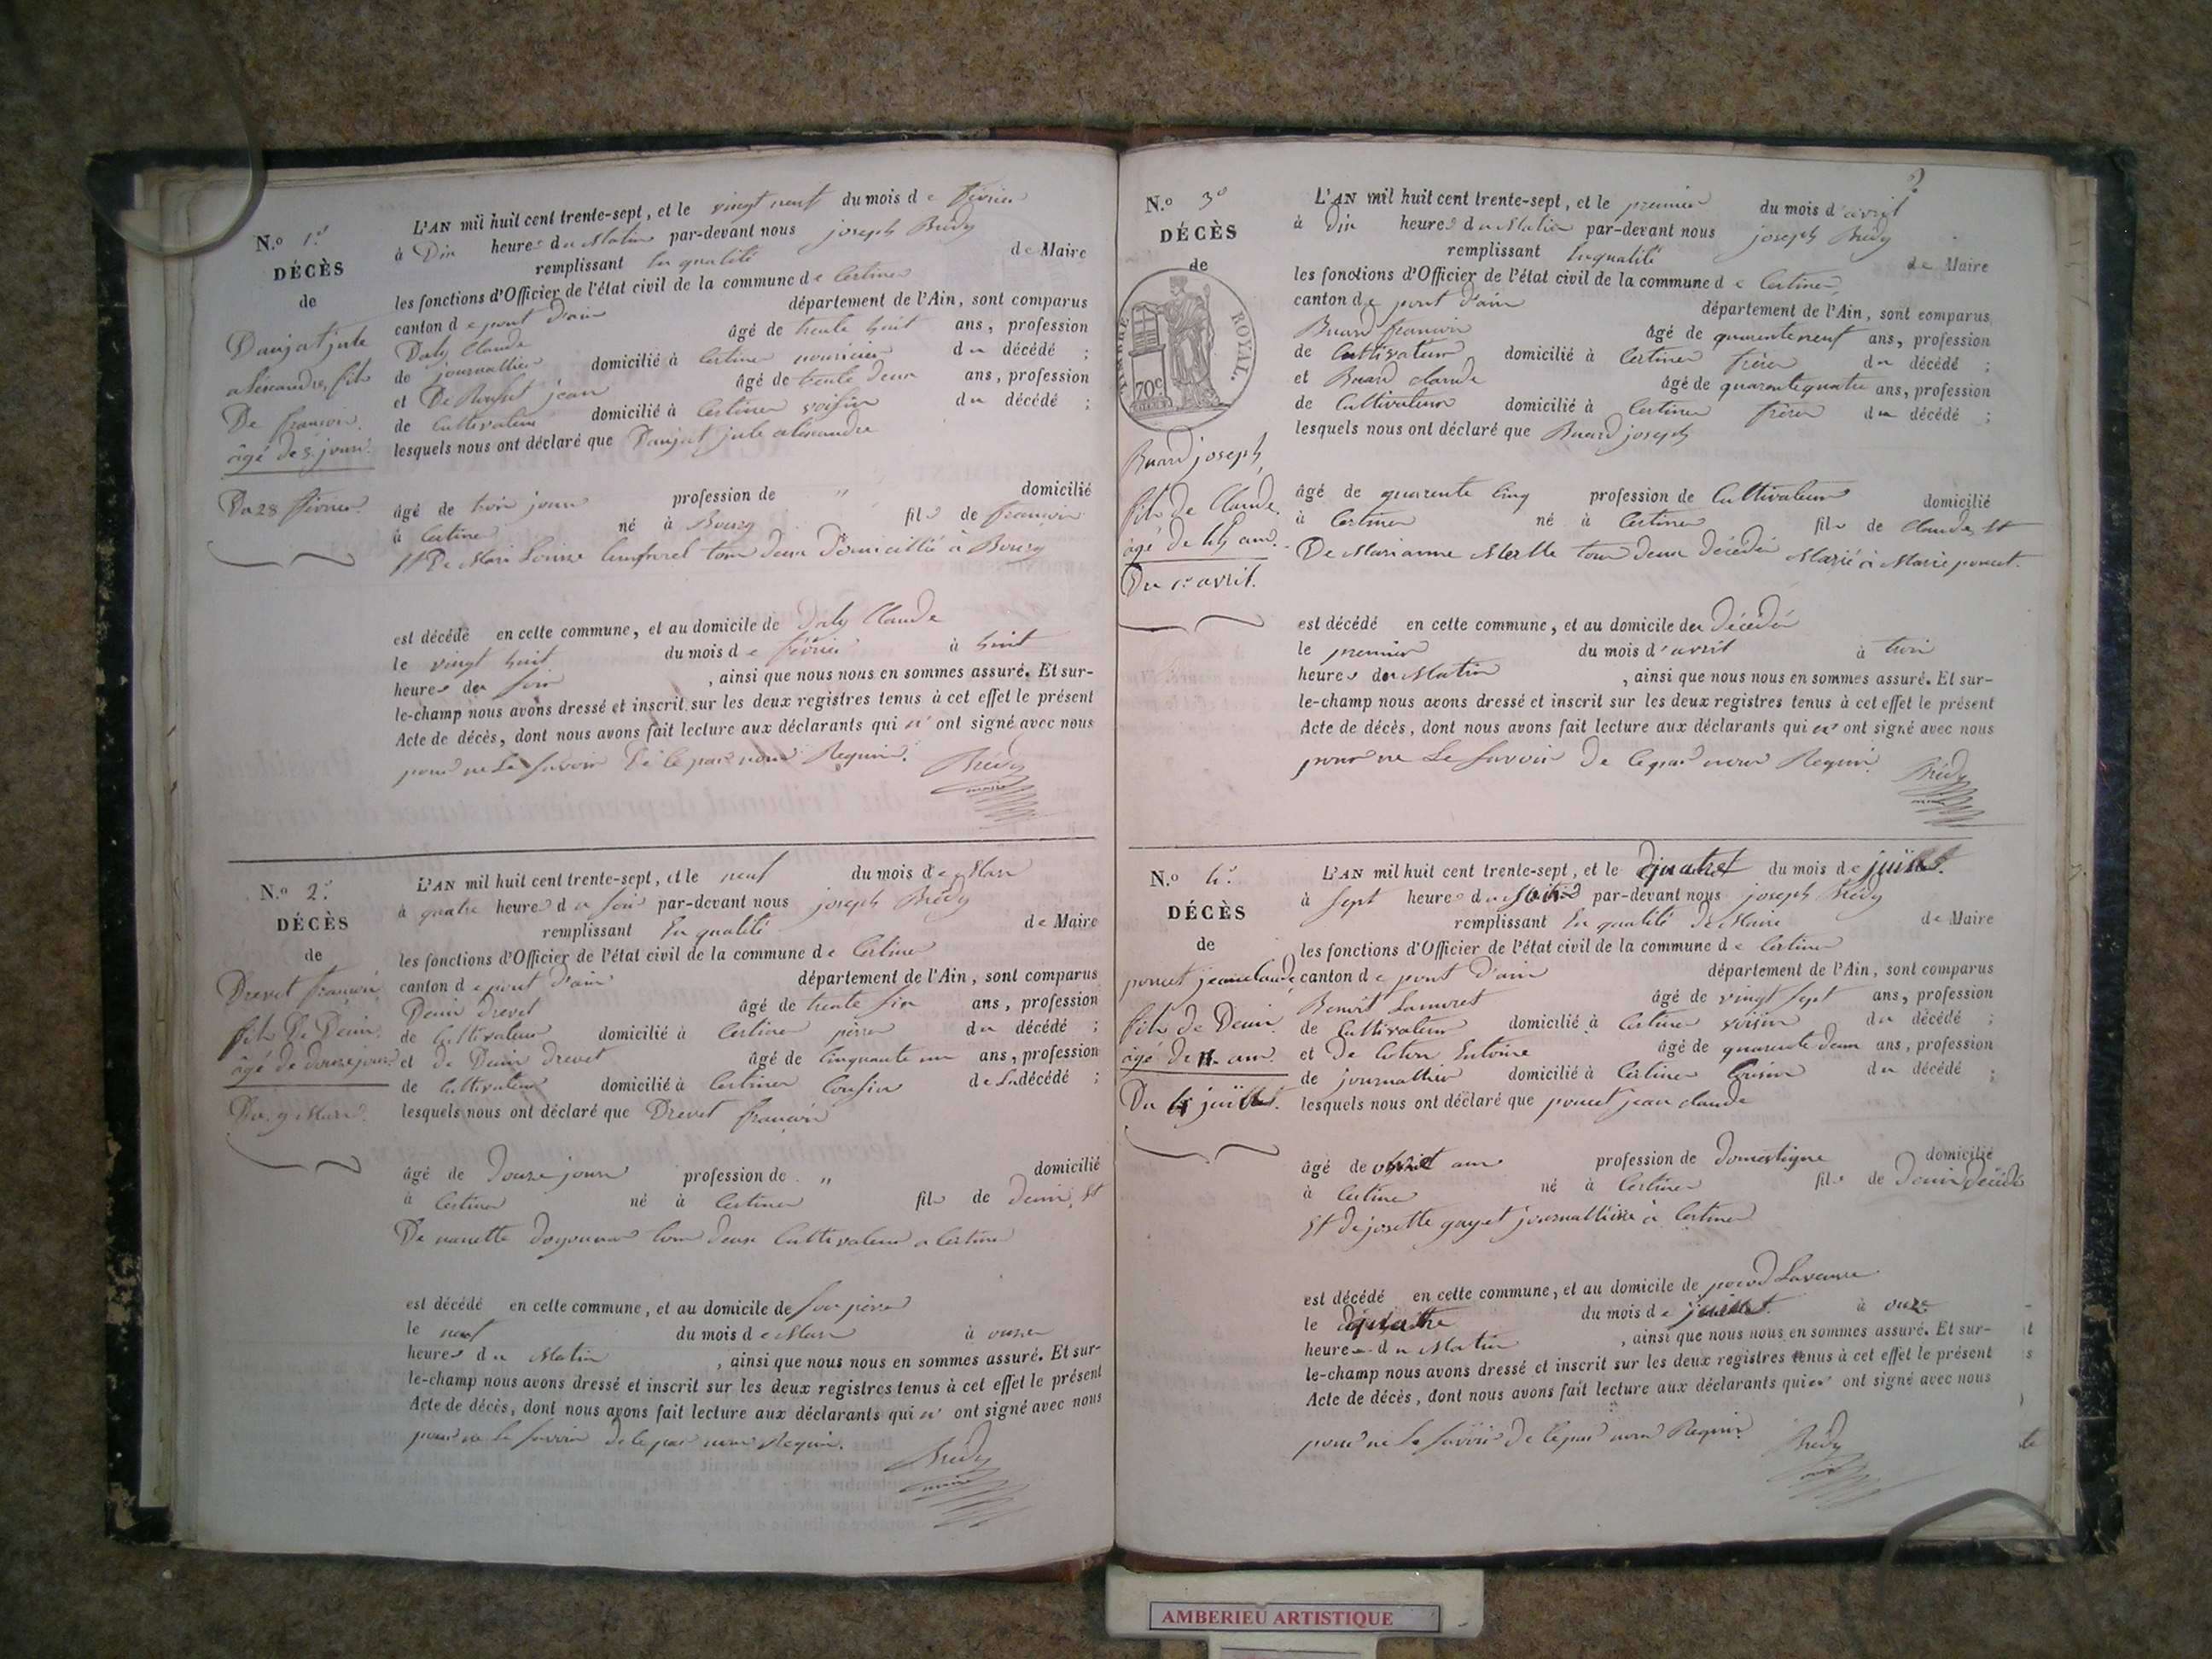 N.º 1.º
DÉCÈS
de
Danjat jule
alexandre, fils
De françois
âgé de 3. jours.
Du 28 février.
L'AN mil huit cent trente-sept, et le vingt neuf du mois de février
à Dix heures du Matin par-devant nous joseph Brédy
remplissant En qualité de Maire
les fonctions d'Officier de l'état civil de la commune de Certines
canton de pont d'ain département de l'Ain, sont comparus
Daly Claude âgé de trente huit ans, profession
de journallier domicilié à Certines nouricier du décédé ;
et De jean âgé de trente deux ans, profession
de Cultivateur domicilié à Certines voisin du décédé ;
lesquels nous ont déclaré que Danjat jule alexandre
âgé de trois jours profession de " domicilié
à Certines né à Bourg fils de françois
Et De Mari Louise tous deux Domicillié à Bourg
est décédé en cette commune, et au domicile de Daly Claude
le vingt huit du mois de février à huit
heures du soir , ainsi que nous nous en sommes assuré. Et sur-
le-champ nous avons dressé et inscrit sur les deux registres tenus à cet effet le présent
Acte de décès, dont nous avons fait lecture aux déclarants qui n' ont signé avec nous
pour ne Le savoir De ce par nous Requis. Brédy
maire
N.º 2.º
DÉCÈS
de
Drevet françois
fils De Denis
âgé de douze jours
Du 9 Mars.
L'AN mil huit cent trente-sept, et le neuf du mois de Mars
à quatre heures du soir par-devant nous joseph Brédy
remplissant En qualité de Maire
les fonctions d'Officier de l'état civil de la commune de Certines
canton de pont d'ain département de l'Ain, sont comparus
Denis Drevet âgé de trente six ans, profession
de Cultivateur domicilié à Certines père du décédé ;
et de Denis Drevet âgé de Cinquante un ans, profession
de Cultivateur domicilié à Certines Cousin de Ludécédé ;
lesquels nous ont déclaré que Drevet françois
âgé de Douze jours profession de " domicilié
à Certines né à Certines fils de Denis, Et
De nanette tous deux Cultivateurs a Certines
est décédé en cette commune, et au domicile de son père
le neuf du mois de Mars à onze
heures du Matin , ainsi que nous nous en sommes assuré. Et sur-
le-champ nous avons dressé et inscrit sur les deux registres tenus à cet effet le présent
Acte de décès, dont nous avons fait lecture aux déclarants qui n' ont signé avec nous
pour ne le savoir de ce par nous Requis. Brédy
maire
N.º 3º
DÉCÈS
de
TIMBRE ROYAL.
70c
Buard joseph
fils de Claude
âgé de 45 ans.
Du 1er avril.
L'AN mil huit cent trente-sept, et le premier du mois d'avril
à Dix heures du Matin par-devant nous joseph Brédy
remplissant En qualité de Maire
les fonctions d'Officier de l'état civil de la commune de Certines
canton de pont d'ain département de l'Ain, sont comparus
Buard françois âgé de quarente neuf ans, profession
de Cultivateur domicilié à Certines frère du décédé ;
et Buard claude âgé de quarente quatre ans, profession
de Cultivateur domicilié à Certines frère du décédé ;
lesquels nous ont déclaré que Buard joseph
âgé de quarente Cinq profession de Cultivateur domicilié
à Certines né à Certines fils de Claude, Et
De Marianne Merlle tous deux Décédés Marié à Marie poncet.
est décédé en cette commune, et au domicile du Décédé
le premier du mois d'avril à trois
heures du Matin , ainsi que nous nous en sommes assuré. Et sur-
le-champ nous avons dressé et inscrit sur les deux registres tenus à cet effet le présent
Acte de décès, dont nous avons fait lecture aux déclarants qui n' ont signé avec nous
pour ne Le savoir De ce par nous Requis. Brédy
maire
N.º 4.º
DÉCÈS
de
poncet jean claude
fils de Denis
âgé de ans
Du 4 juillet.
L'AN mil huit cent trente-sept, et le quatre du mois de juillet.
à sept heures du soir par-devant nous joseph Brédy
remplissant En qualité de Maire de Maire
les fonctions d'Officier de l'état civil de la commune de Certines
canton de pont d'ain département de l'Ain, sont comparus
Benoit Lamvret âgé de vingt sept ans, profession
de Cultivateur domicilié à Certines voisin du décédé ;
et De Coton Entoine âgé de quarente deux ans, profession
de journallier domicilié à Certines Cousin du décédé ;
lesquels nous ont déclaré que poncet jean claude
âgé de ans profession de Domestique domicilié
à Certines né à Certines fils de Denis Décédé
Et de josette gayet journallière à Certines
est décédé en cette commune, et au domicile de
le quatre du mois de juillet. à onze
heures du Matin , ainsi que nous nous en sommes assuré. Et sur-
le-champ nous avons dressé et inscrit sur les deux registres tenus à cet effet le présent
Acte de décès, dont nous avons fait lecture aux déclarants qui n' ont signé avec nous
pour ne Le savoir De ce par nous Requis. Brédy
maire
AMBERIEU ARTISTIQUE